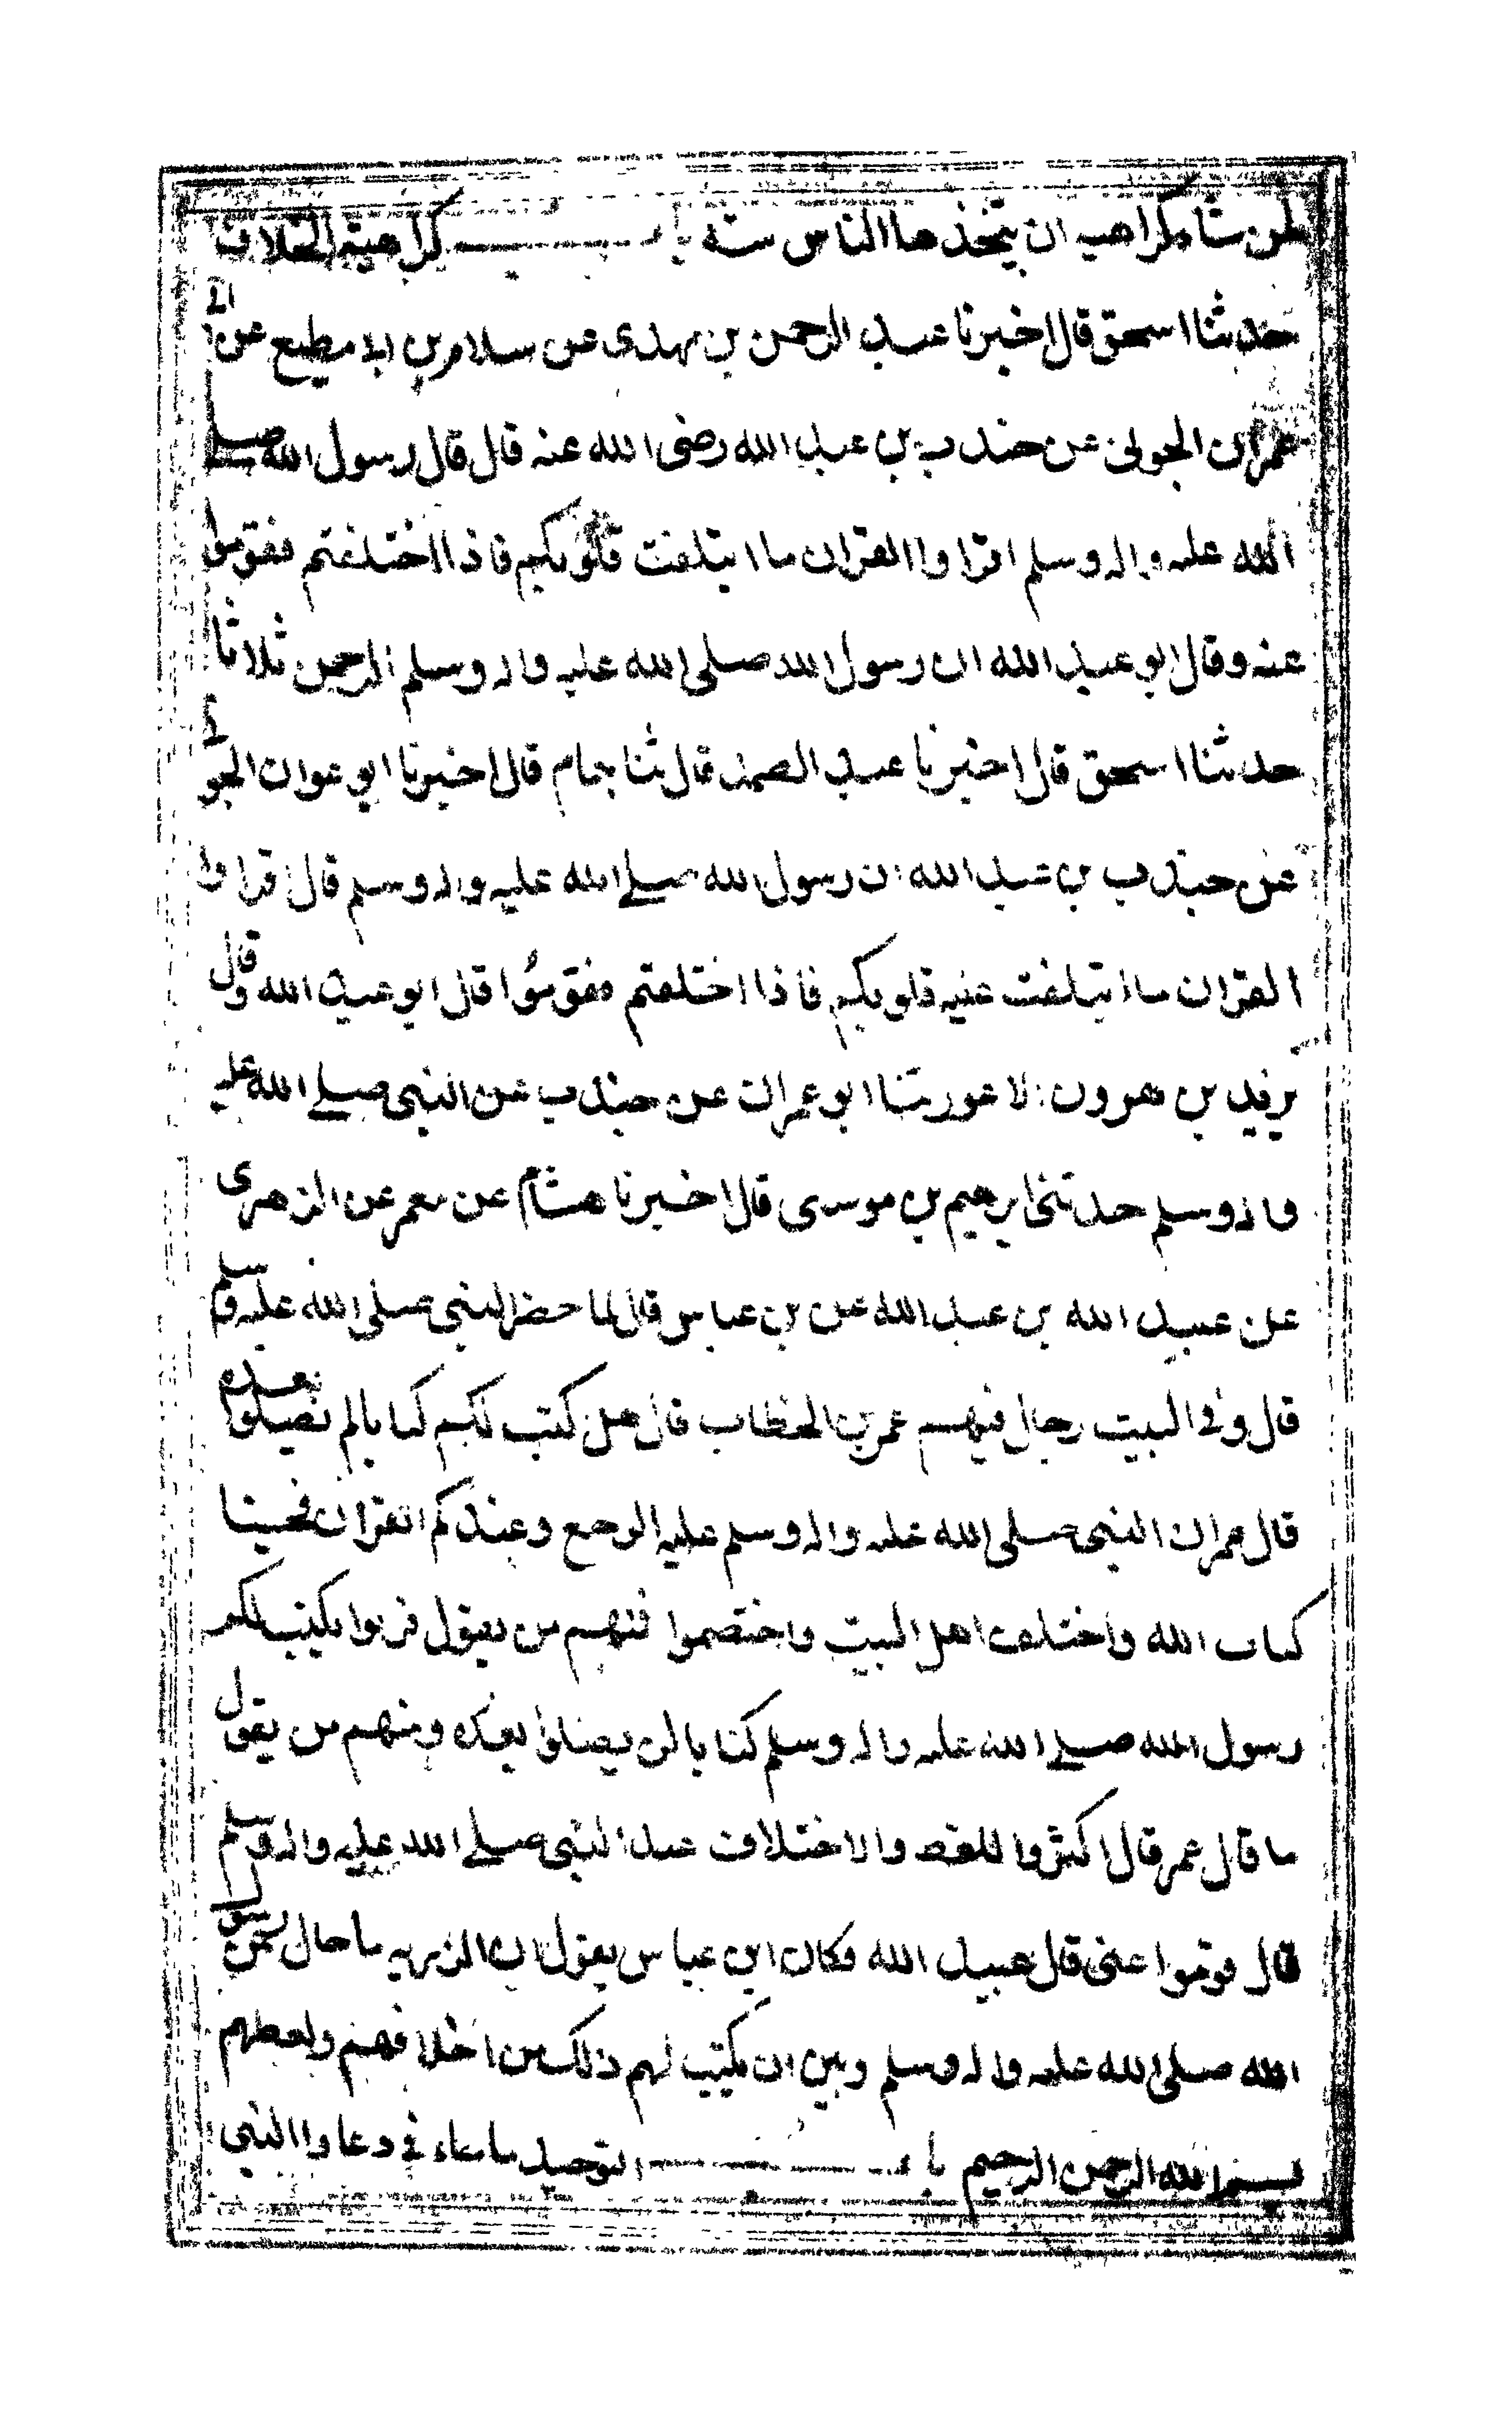 لمن شاء كراهية ان يتخذها الناس سنة باب كراهية الخلاف
حدثنا اسحق قال اخبرنا عبد الرحمن بن مهدى عن سلام بن ابى مطيع عن ابى
عمران الجونى عن جندب بن عبد الله رضى الله عنه قال قال رسول الله صلى
الله عليه واله وسلم اقراوا القران ما ايتلفت قلوبكم فاذا اختلفتم فقوموا
عنه وقال ابو عبد الله ان رسول الله صلى الله عليه واله وسلم الرحمن ثلاثا
حدثنا اسحق قال اخبرنا عبد الصمد قال ثنا همام قال اخبرنا ابو عوان الجونى
عن جندب بن عبد الله ان رسول الله صلى الله عليه واله وسلم قال اقراوا
القران ما ايتلفت عليه قلوبكم فاذا اختلفتم فقوموا قال ابو عبد الله وقال
يزيد بن هرون الاعور ثنا ابو عمران عن جندب عن النبى صلى الله عليه
واله وسلم حدثنى ابرهيم بن موسى قال اخبرنا هشام عن معمر عن الزهرى
عن عبيد الله بن عبد الله عن بن عباس قال لما حضر النبى صلى الله عليه وسلم
قال وفى البيت رجال فيهم عمر بن الخطاب قال هل كتب لكم كتابا لم تضلوا بعده
قال عمر ان النبى صلى الله عليه واله وسلم عليه الوجع وعندكم القران فحسبنا
كتاب الله واختلف اهل البيت واختصموا فمنهم من يقول قربوا يكتب لكم
رسول الله صلى الله عليه واله وسلم كتابا لن يضلوا بعده ومنهم من يقول
ما قال عمر قال اكثروا للغط والاختلاف عند النبى صلى الله عليه واله وسلم
قال قوموا عنى قال عبيد الله فكان ابن عباس يقول ان الزريه ما حال بين رسول
الله صلى الله عليه واله وسلم وبين ان يكتب لهم ذلك من اخلافهم ولغطهم
بسم الله الرحمن الرحيم باب التوحيد ما جاء فى دعاوا النبى